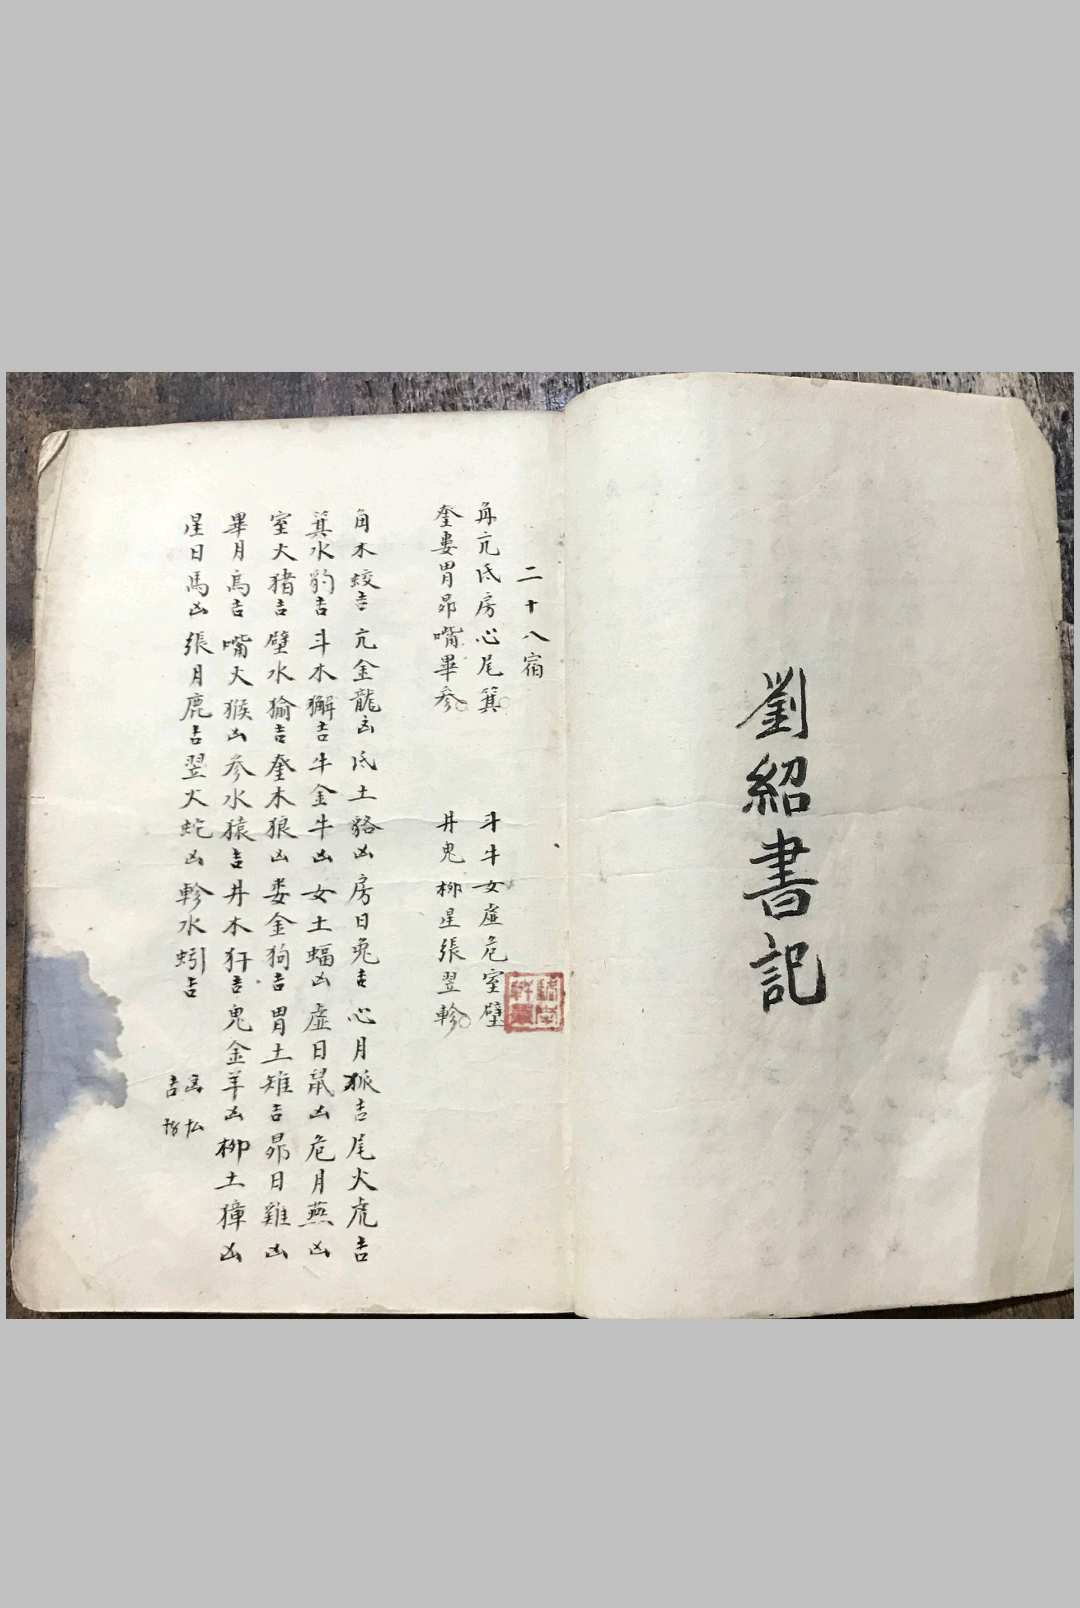 劉紹書記
二十八宿
角亢氐房心尾箕 斗牛女虛危室壁
奎婁胃昴嘴畢參 井鬼柳星張翌軫
角木蛟吉亢金龍凶氐土貉凶房日兎吉心月狐吉尾火虎吉
箕水豹吉斗木獬吉牛金牛凶女土蝠凶虛日鼠凶危月燕凶
室火猪吉壁水㺄吉奎木狼凶娄金狗吉胃土雉吉昴日雞凶
畢月烏吉嘴火猴凶参水猿吉井木犴吉鬼金羊凶柳土獐凶
星日馬凶張月鹿吉翌火蛇凶軫水蚓吉
吉